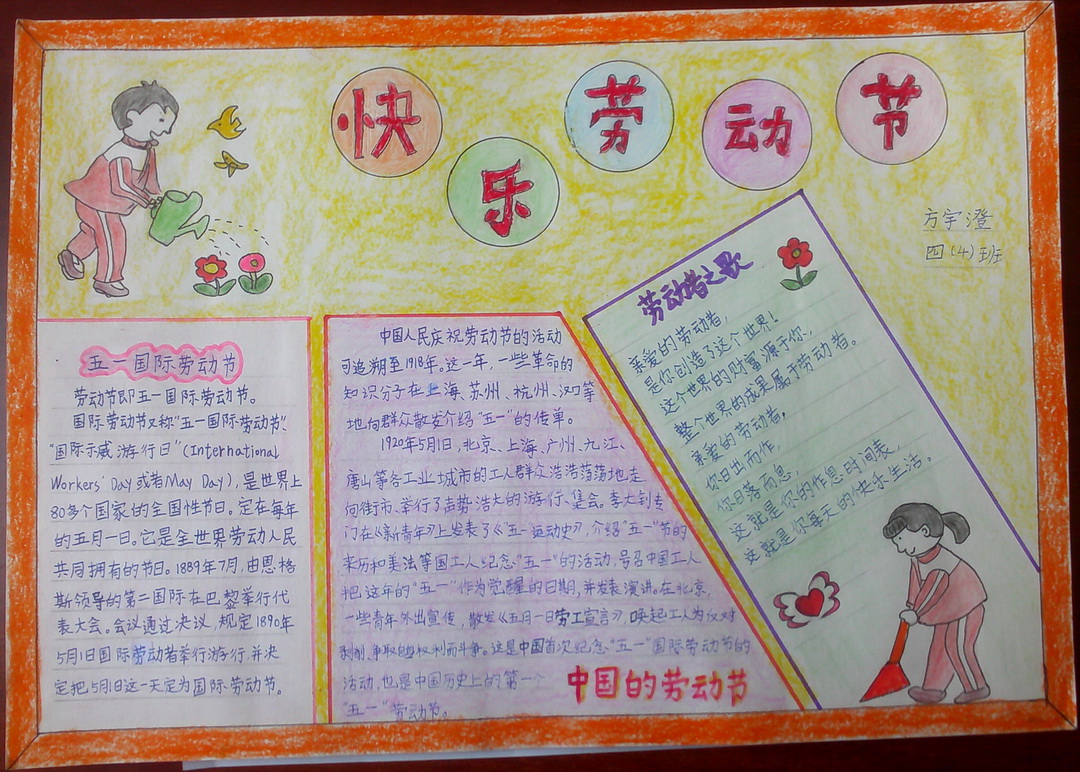 快乐劳动节
方宇澄
四(4)班
五一国际劳动节
劳动节即五一国际劳动节。
国际劳动节又称"五一国际劳动节"、
"国际示威游行日"(International
Workers' Day或者May Day),是世界上
80多个国家的全国性节日。定在每年
的五月一日。它是全世界劳动人民
共同拥有的节日。1889年7月,由恩格
斯领导的第二国际在巴黎举行代
表大会。会议通过决议,规定1890年
5月1日国际劳动者举行游行,并决
定把5月1日这一天定为国际劳动节。
中国人民庆祝劳动节的活动
可追溯至1918年。这一年,一些革命的
知识分子在上海、苏州、杭州、汉口等
地向群众散发介绍"五一"的传单。
1920年5月1日,北京、上海、广州、九江、
唐山等各工业城市的工人群众浩浩荡荡地走
向街市、举行了声势浩大的游行、集会。李大钊专
门在《新青年》上发表了《五一运动史》,介绍"五一"节的
来历和美法等国工人纪念"五一"的活动,号召中国工人
把这年的"五一"作为觉醒的日期,并发表演讲。在北京,
一些青年外出宣传、散发《五月一日劳工宣言》,唤起工人为反对
剥削、争取自己权利而斗争。这是中国首次纪念"五一"国际劳动节的
活动,也是中国历史上的第一个
"五一"劳动节。
中国的劳动节
劳动者之歌
亲爱的劳动者,
是你创造了这个世界!
这个世界的财富源于你,
整个世界的成果属于劳动者。
亲爱的劳动者,
你日出而作,
你日落而息,
这就是你的作息时间表,
这就是你每天的快乐生活。